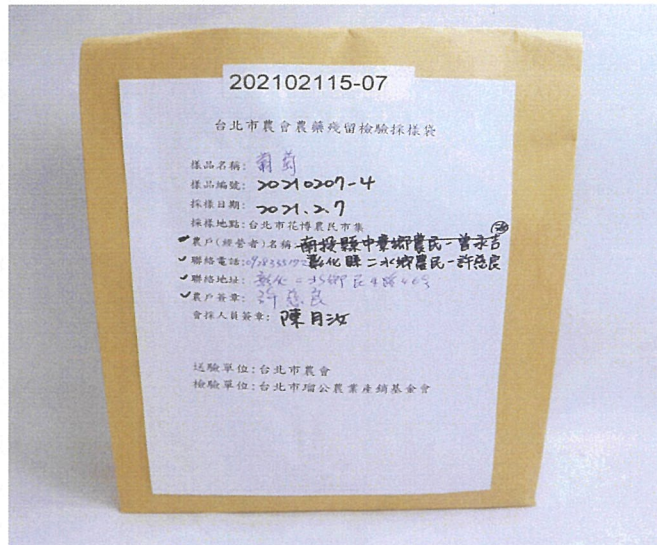 202102115-07
台北市農會農藥殘留檢驗採樣袋
樣品名稱: 葡萄
樣品編號: 20210207-4
採樣日期: 2021.2.7
採樣地點:台北市花博農民市集
✓農戶(經營者)名稱: 南投縣中寮鄉農民-曾永吉
✓聯絡電話: 彰化縣二水鄉農民-許慈良
✓聯絡地址: 彰化二水鄉民生路40号
✓農戶簽章: 許慈良
會採人員簽章: 陳月汝
送驗單位:台北市農會
檢驗單位:台北市瑠公農業產銷基金會